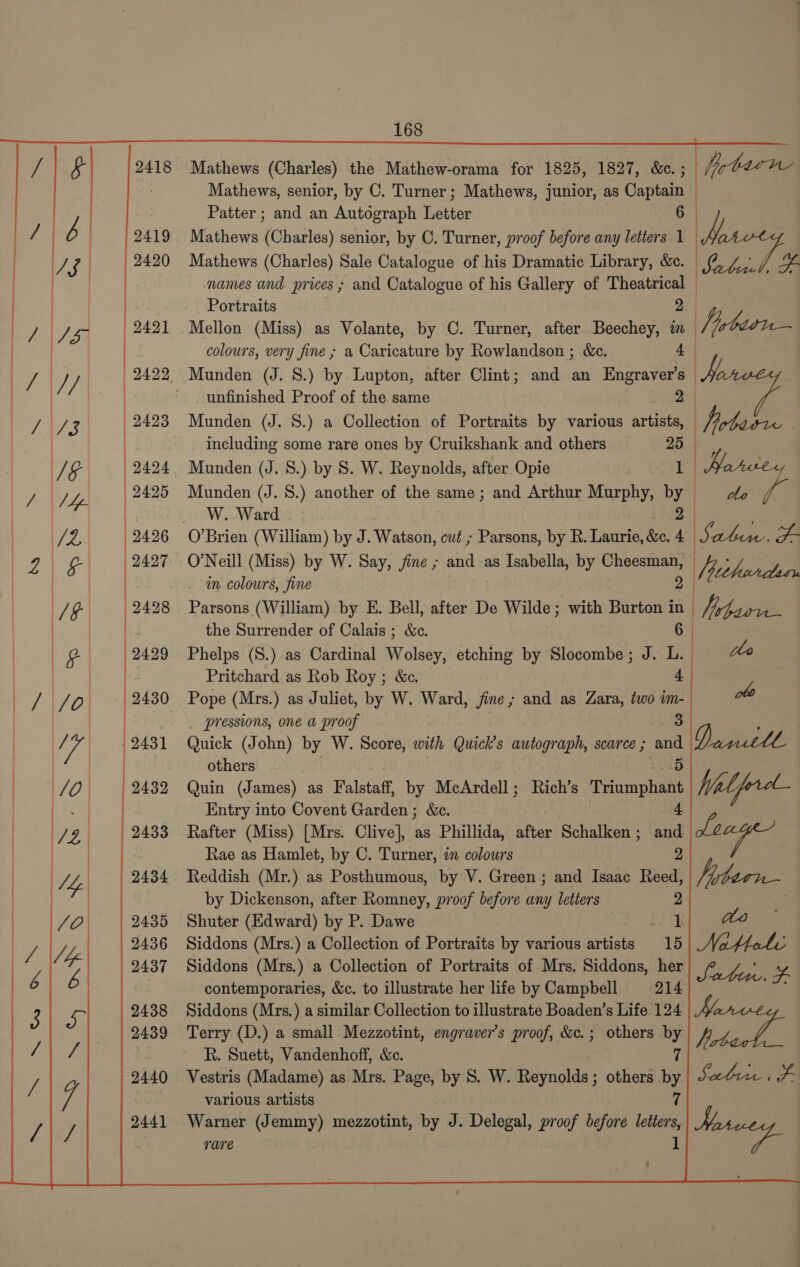 168
1 8 2418 Mathews (Charles) the Mathew-orama for 1825, 1827, &c.; Hobson
Mathews, senior, by C. Turner; Mathews, junior, as Captain
Patter; and an Autograph Letter 6
1 6 2419 Mathews (Charles) senior, by C. Turner, proof before any letters 1 Harvey
13 2420 Mathews (Charles) Sale Catalogue of his Dramatic Library, &c. Sabin. F
names and prices; and Catalogue of his Gallery of Theatrical
Portraits 2
1 15 2421 Mellon (Miss) as Volante, by C. Turner, after Beechey, in
colours, very fine; a Caricature by Rowlandson; &c. 4
1 11 2422 Munden (J. S.) by Lupton, after Clint; and an Engraver's Harvey
unfinished Proof of the same 2
1 13 2423 Munden (J. S.) a Collection of Portraits by various artists,
including some rare ones by Cruikshank and others 25
18 2424 Munden (J. S.) by S. W. Reynolds, after Opie 1 Harvey
1 14 2425 Munden (J. S.) another of the same; and Arthur Murphy, by do
W. Ward 2
12 2426 O'Brien (William) by J. Watson, cut; Parsons, by R. Laurie, &c. 4 Sabin. F
2 8 2427 O'Neill (Miss) by W. Say, fine; and as Isabella, by Cheesman, Richardson
in colours, fine 2
18 2428 Parsons (William) by E. Bell, after De Wilde; with Burton in
the Surrender of Calais; &c. 6
8 2429 Phelps (S.) as Cardinal Wolsey, etching by Slocombe; J. L. do
Pritchard as Rob Roy; &c. 4
1 10 2430 Pope (Mrs.) as Juliet, by W. Ward, fine; and as Zara, two im- do
pressions, one a proof 3
17 2431 Quick (John) by W. Score, with Quick's autograph, scarce; and Daniell
others 5
10 2432 Quin (James) as Falstaff, by McArdell; Rich's Triumphant Walford
Entry into Covent Garden; &c. 4
12 2433 Rafter (Miss) [Mrs. Clive], as Phillida, after Schalken; and
Rae as Hamlet, by C. Turner, in colours 2
14 2434 Reddish (Mr.) as Posthumous, by V. Green; and Isaac Reed,
by Dickenson, after Romney, proof before any letters 2
10 2435 Shuter (Edward) by P. Dawe 1 do
1 14 2436 Siddons (Mrs.) a Collection of Portraits by various artists 15 Nattali
6 6 2437 Siddons (Mrs.) a Collection of Portraits of Mrs. Siddons, her Sabin. F
contemporaries, &c. to illustrate her life by Campbell 214
3 5 2438 Siddons (Mrs.) a similar Collection to illustrate Boaden's Life 124 Harvey
1 1 2439 Terry (D.) a small Mezzotint, engraver's proof, &c.; others by
R. Suett, Vandenhoff, &c. 7
1 9 2440 Vestris (Madame) as Mrs. Page, by S. W. Reynolds; others by Sabin. F
various artists 7
1 1 2441 Warner (Jemmy) mezzotint, by J. Delegal, proof before letters, Harvey
rare 1